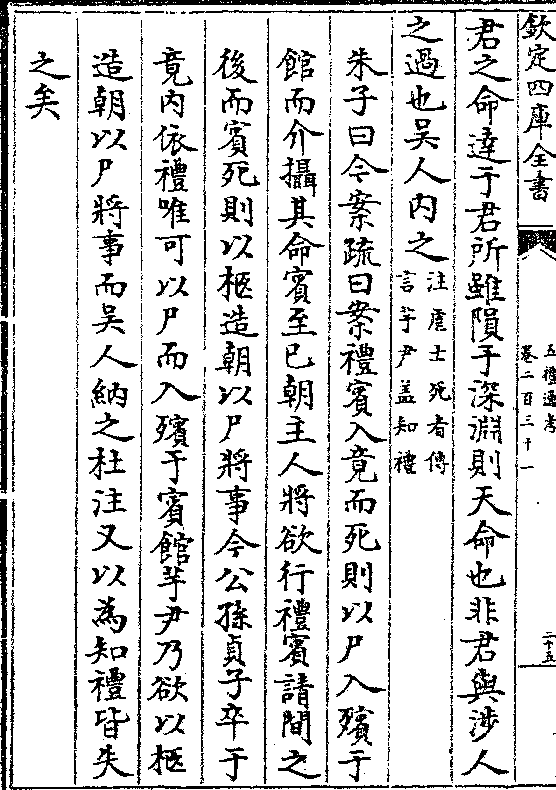 欽定四庫全書
五禮通考
卷二百三十一
二十五
君之命達于君所雖隕于深淵則天命也非君與涉人
之過也吳人内之
注虗士死者傳
言芋尹盖知禮
朱子曰今案疏曰案禮賓入竟而死則以尸入殯于
館而介攝其命賓至已朝主人將欲行禮賓請間之
後而賓死則以柩造朝以尸將事今公孫貞子卒于
竟内依禮唯可以尸而入殯于賓館芋尹乃欲以柩
造朝以尸將事而吳人納之杜注又以為知禮皆失
之矣